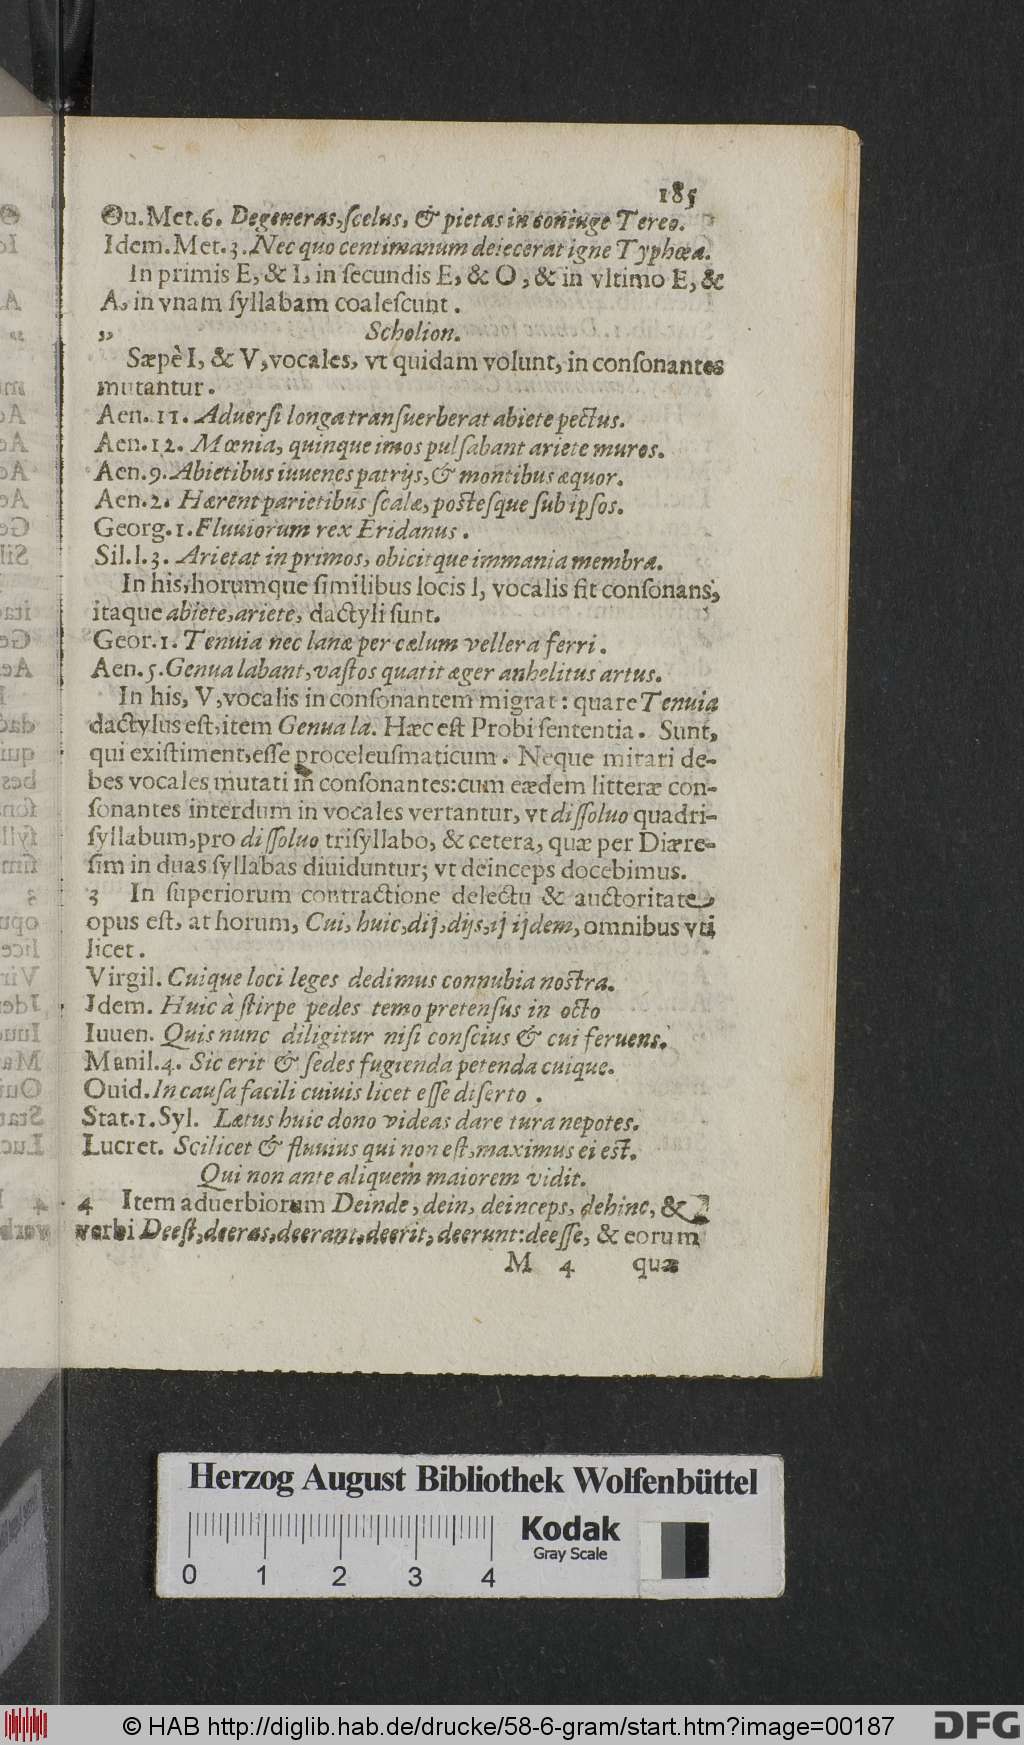 185
Ou.Met.6. Degeneras,ſcelus, & pietas in coniuge Tereo.
Idem.Met.3. Nec quo centimanum deiecerat igne Typhœa.
In primis E, & I, in ſecundis E, & O, & in vltimo E, &
A, in vnam ſyllabam coaleſcunt.
„ Scholion.
Sæpè I, & V, vocales, vt quidam volunt, in conſonantes
mutantur.
Aen.11. Aduerſi longa tranſuerberat abiete pectus.
Aen.12. Mœnia, quinque imos pulſabant ariete muros.
Aen.9. Abietibus iuuenes patrijs, & montibus æquor.
Aen.2. Hærent parietibus ſcalæ, poſteſque ſub ipſos.
Georg.1. Fluuiorum rex Eridanus.
Sil.l.3. Arietat in primos, obicitque immania membra.
In his, horumque ſimilibus locis I, vocalis fit conſonans,
itaque abiete, ariete, dactyli ſunt.
Geor.1. Tenuia nec lanæ per cælum vellera ferri.
Aen.5. Genua labant, vaſtos quatit æger anhelitus artus.
In his, V, vocalis in conſonantem migrat: quare Tenuia
dactylus eſt, item Genua la. Hæc eſt Probi ſententia. Sunt,
qui exiſtiment, eſſe proceleuſmaticum. Neque mirari de-
bes vocales mutati in conſonantes: cum eædem litteræ con-
ſonantes interdum in vocales vertantur, vt diſſoluo quadri-
ſyllabum, pro diſſoluo triſyllabo, & cetera, quæ per Diære-
ſim in duas ſyllabas diuiduntur; vt deinceps docebimus.
3 In ſuperiorum contractione delectu & auctoritate
opus eſt, at horum, Cui, huic, dij, dijs, ij ijdem, omnibus vti
licet.
Virgil. Cuique loci leges dedimus connubia noſtra.
Idem. Huic à ſtirpe pedes temo pretenſus in octo
Iuuen. Quis nunc diligitur niſi conſcius & cui feruens.
Manil.4. Sic erit & ſedes fugienda petenda cuique.
Ouid. In cauſa facili cuiuis licet eſſe diſerto.
Stat.1.Syl. Lætus huic dono videas dare tura nepotes.
Lucret. Scilicet & fluuius qui non eſt, maximus ei eſt.
Qui non ante aliquem maiorem vidit.
4 Item aduerbiorum Deinde, dein, deinceps, dehinc, &
verbi Deeſt, deeras, deerant, deerit, deerunt: deeſſe, & eorum
M 4 quæ
Herzog August Bibliothek Wolfenbüttel
Kodak
Gray Scale
0 1 2 3 4
© HAB http://diglib.hab.de/drucke/58-6-gram/start.htm?image=00187 DFG